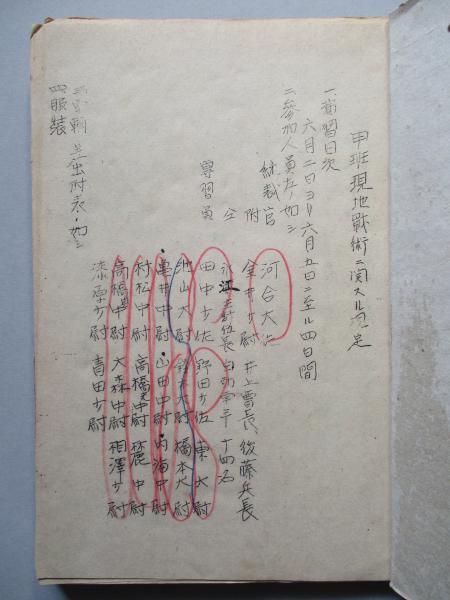 甲班現地戦術ニ関スル規定
一、演習日次
六月二日ヨリ六月五日ニ至ル四日間
二、参加人員左ノ如シ
統裁官 河合大佐
附 金井少尉 井上曹長、後藤兵長
仝 長 十四名
専習員 田中少佐 野田少佐 東大尉
池山大尉 鈴木大尉 橋本大尉
亀井中尉 山田中尉 内海中尉
村松中尉 高橋中尉 麓中尉
高橋中尉 大森中尉 相澤少尉
漆原少尉 青田少尉
三、 附表ノ如シ
四、服装